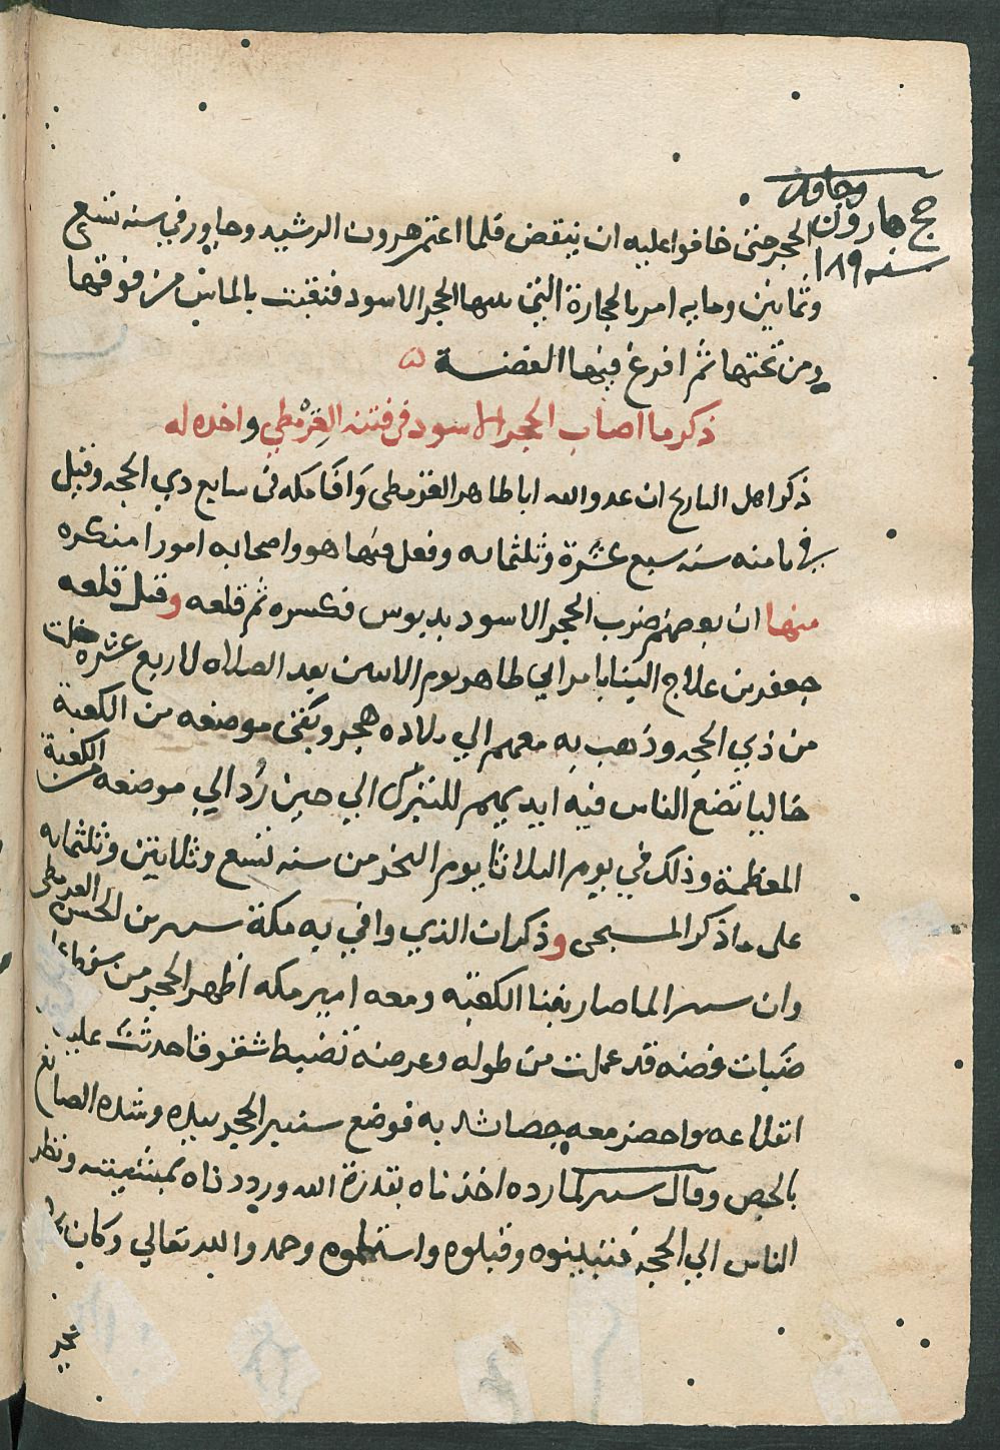 وجاور
حج هارون
سنه ١٨٩
الحجر حتى خافوا عليه ان ينقض فلما اعتمر هرون الرشيد وجاور في سنه تسع
وثمانين ومايه امر بالحجارة التي بينها الحجر الاسود فنقبت بالماس من فوقها
ومن تحتها ثم افرغ فيها الفضة ه
ذكر ما اصاب الحجر الاسود في فتنة القرمطي واخذه له
ذكر اهل التاريخ ان عدو الله ابا طاهر القرمطي وافا مكه في سابع ذي الحجه وقيل
في ثامنه سنه سبع عشرة وثلثمايه وفعل فيها هو واصحابه امورا منكره
منها ان بعضهم ضرب الحجر الاسود بدبوس فكسره ثم قلعه وقيل قلعه
جعفر بن علاج البنا بامر ابي طاهر يوم الاثنين بعد الصلاه لاربع عشره خلت
من ذي الحجه وذهب به معهم الي بلاده هجر وبقى موضعه من الكعبة
خاليا تضع الناس فيه ايديهم للتبرك الي حين رد الي موضعه من الكعبة
المعظمة وذلك في يوم الثلاثا يوم النحر من سنه تسع وثلاثين وثلثمايه
على ما ذكر المسبحى وذكر ان الذي وافي به مكة سنبر بن الحسن القرمطي
وان سنبر لما صار بفنا الكعبه ومعه امير مكه اظهر الحجر من سفط عليه
ضبات فضه قد عملت من طوله وعرضه تضبط شقوقا حدثت عليه
انقلاعه واحضر معه جصا شد به فوضع سنبر الحجر بيده وشده الصانع
بالجص وقال سنبر لما رده اخذناه بقدرة الله ورددناه بمشيئته ونظر
الناس الي الحجر فتبينوه وقبلوه واستلموه وحمدوا الله تعالي وكان رد